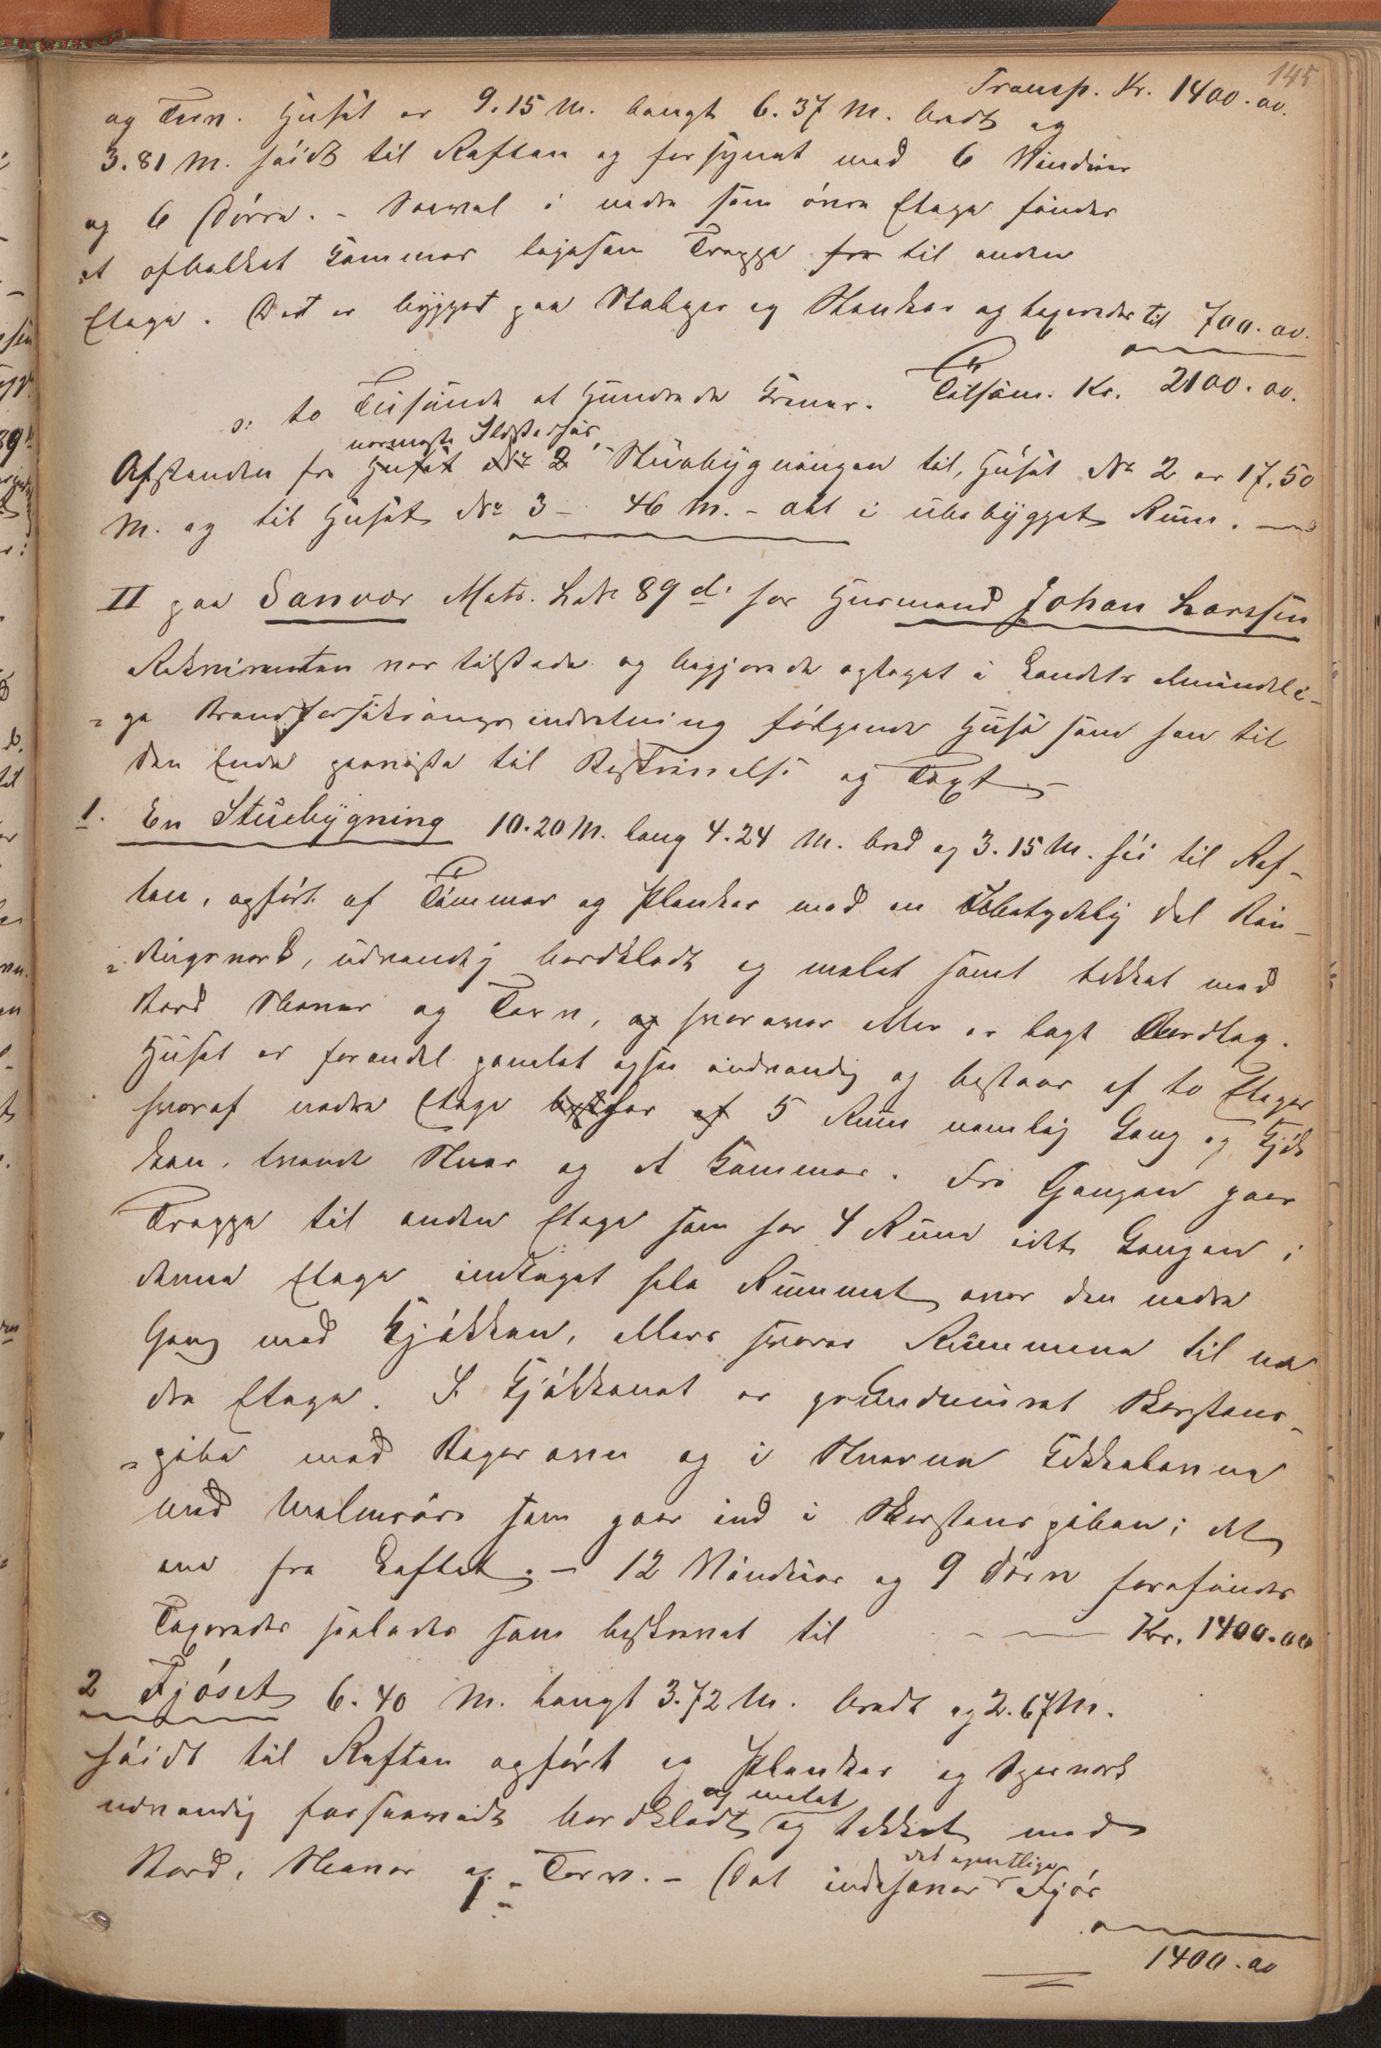 145
Transp. Kr. 1400.00.
og Torv. Huset er 9.15 M. langt 6.37 M. bredt og
3.81 M. høidt til Raften og forsynet med 6 Vinduer
og 6 Dørre. - Saavel i nedre som øvre Etage findes
et afbalket Kammer ligesom Trappe fra til anden
Etage. Det er bygget paa Stolper og Stenkar og taxeredes til 700.00.
Tilsam. Kr. 2100.00.
s: to Tusinde et Hundrede Kroner.
nærmeste Ildstedshus,
Afstanden fra Huset No 2 Stuebygningen til, Huset No 2 er 17,50
M. og til Huset No 3 - 46 M. - alt i ubebygget Rum. -
II paa Sanvær Matr. Løbe 89 d. for Husmand Johan Larssen
Rekvirenten var tilstede og begjærede optaget i Landets almindeli-
ge Brandforsikringsindretning følgende Huse som han til
den Ende paaviste til Beskrivelse og Taxt -
1. En Stuebygning 10.20 M. lang 4.24 M. bred og 3.15 M. høi til Raf-
ten, opført af Tømmer og Planker med en Ubetydelig del Bin-
dingsverk, udvendig bordklædt og malet samt tækket med
Bord Næver og Torv, og hvorover atter er lagt Bordtag.
Huset er forendel panelet ogsaa indvendig og bestaar af to Etager
hvoraf nedre Etage best har af 5 Rum nemlig Gang og Kjøk
ken, tvende Stuer og et Kammer. Fra Gangen gaar
Trappe til anden Etage som har 4 Rum idet Gangen i
denne Etage indtaget hele Rummet over den nedre
Gang med Kjøkken, ellers svarer Rummene til ne
dre Etage. I Kjøkkenet er grundmuret Skorstens-
pibe med Bagerovn og i Stuerne Kakkelovne
med Malmrør som gaar ind i Skorstenspiben; det
ene fra Loftet. - 12 Vinduer og 9 Døre forefindes
Taxeredes saaledes som beskrevet til - - Kr. 1400.00
2 Fjøset 6.40 M. langt 3.72 M. bredt og 2.67 M.
høidt til Raften opført af Planker og
udvendig forsaavidt bordklædt og tækket med
og malet
Bord, Næver og Torv. - Det indeholder Fjøs
det egentlige
1400.00